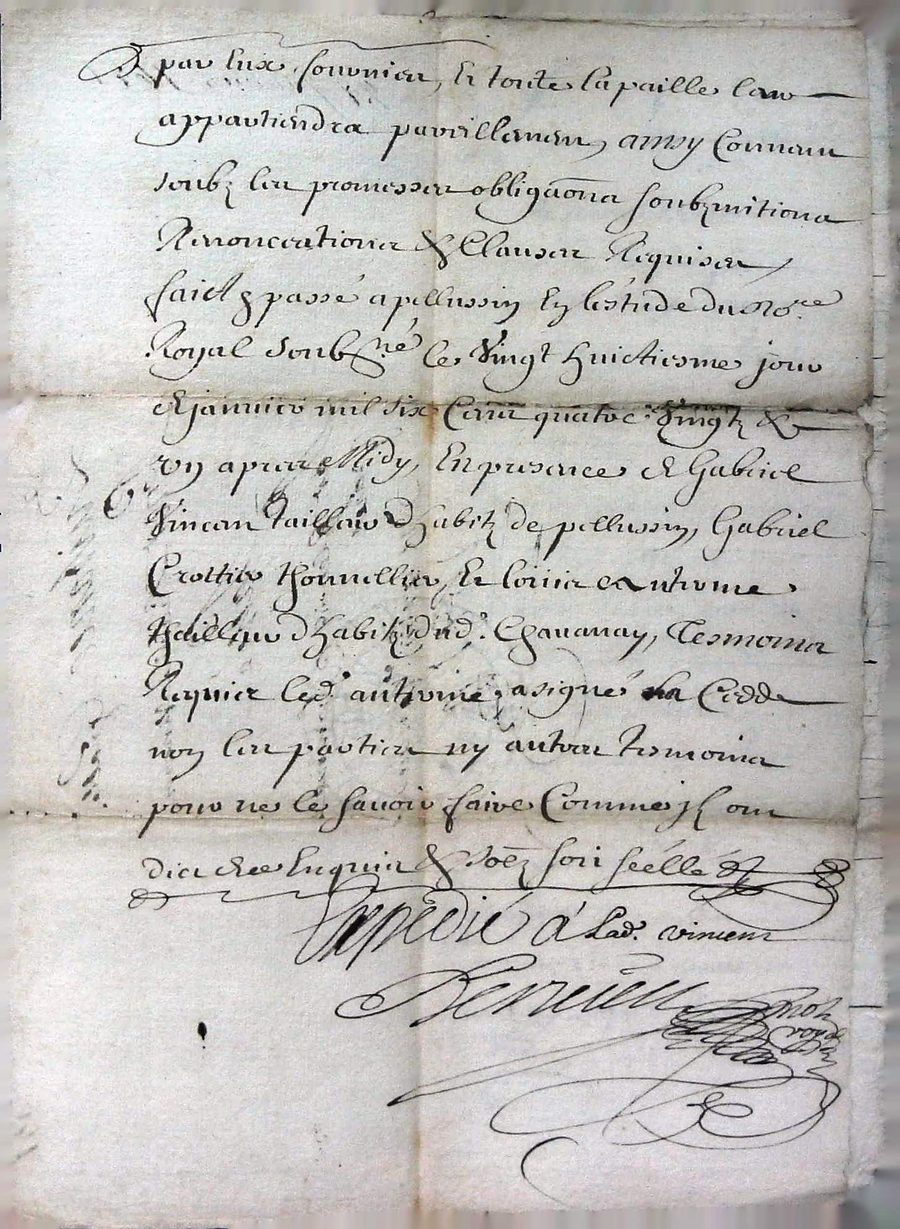 par Eux fournier, Et toute la paille leur
appartiendra pareillemen, ainsy Convenu
soubz les promesses obligaons soubzmitions
Renonceations & Clauses Requises,
faict & passé a pellussin En l'estude du Nore
Royal soubsné le Vingt huictiesme jour
de janvier mil six Cens quatre Vingtz &
un apres Midy, En presence de Gabriel
Vincan tailleur d'habitz de pellussin, Gabriel
Crottier thonnellier, Et louis Anthoine
thailleur d'habitz dud. Chavanay, Tesmoins
Requis led. anthoine a signé la Cedde
non les parties ny autres tesmoins
pour ne le savoir faire Comme jlz ont
dict de ce Enquis & soict seellé
Expedié á Lad. vincent
not
royal